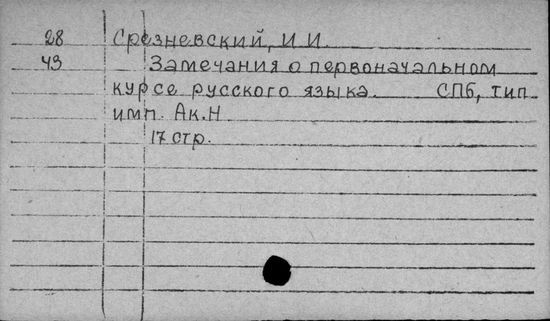 28 Срезневский, И.И.
43 Замечания о первоначальном
курсе русского языка. СПб, тип.
имп. Ак.Н
17 стр.